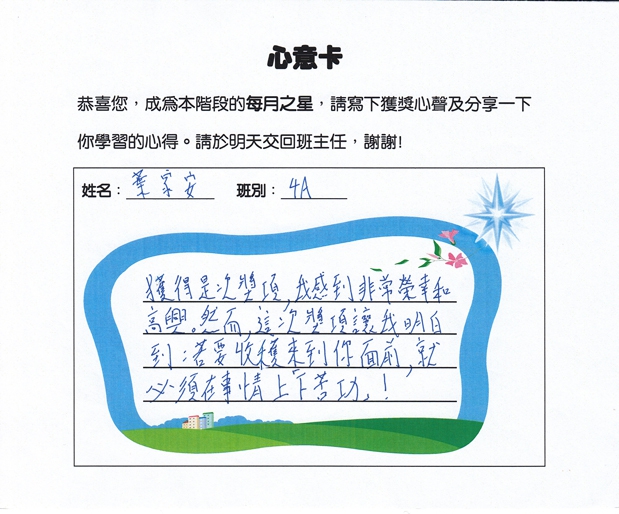 心意卡
恭喜您，成為本階段的每月之星，請寫下獲獎心聲及分享一下
你學習的心得。請於明天交回班主任，謝謝!
姓名： 葉家安 班別： 4A
獲得是次獎項，我感到非常榮幸和
高興。然而，這次獎項讓我明白
到：若要收穫來到你面前，就
必須在事情上下苦功。！